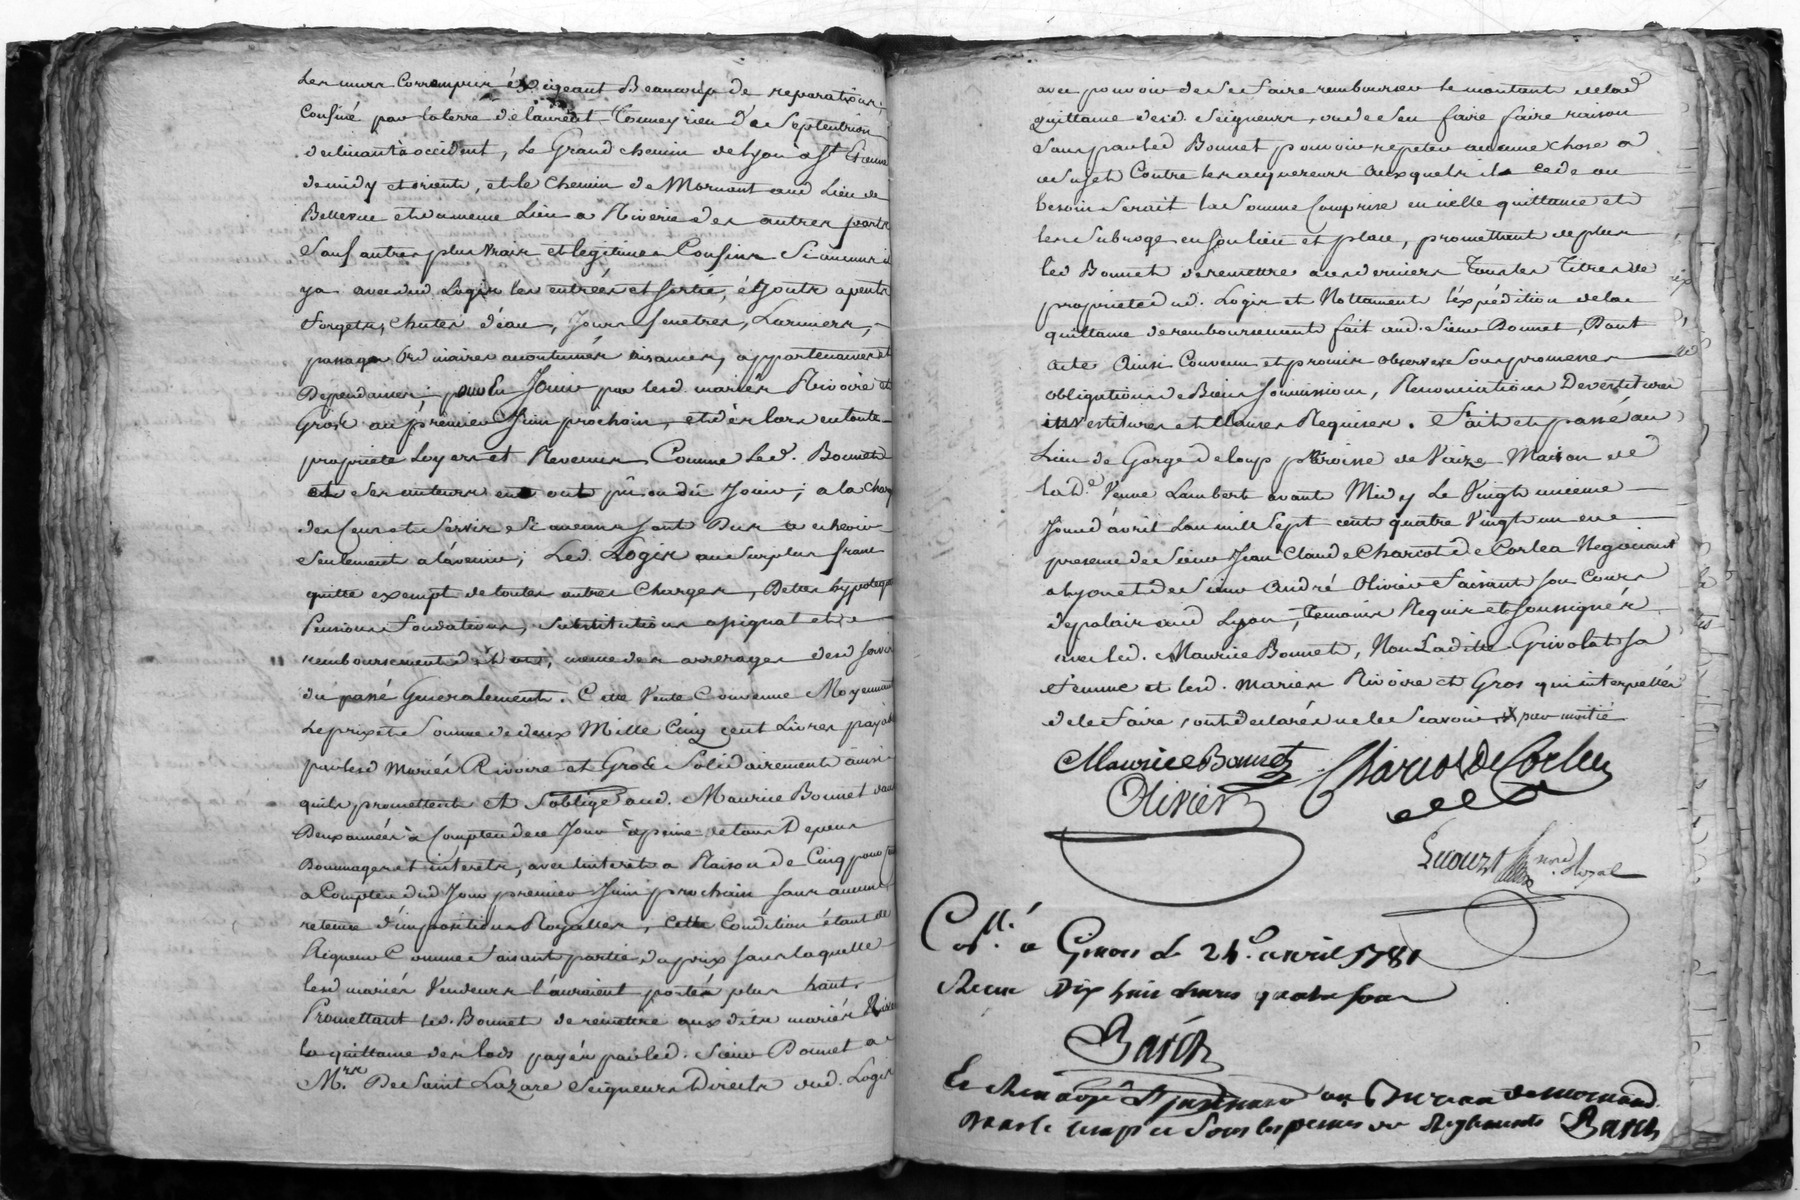 Les murs Corrompus éxigeant Beaucoup de reparations,
Confiné par la terre de laurent Tonneyrieu de Septentrion
declinant à occident, Le Grand chemin de Lyon a St. Etienne
de midy et orient, et le chemin de Mornant aud Lieu de
Bellevue et du meme Lieu a Riverie des autres parts
Sauf autres plus vrais et legitimes Confins Si aucuns il
ya avec dud Logis les entrées et sortie, égouts apents
forgets, chutes d'eau, jours fenetres, Larmiers,
passages ordinaires accoutumés aisances, appartenances et
Dependances; pour En Jouir par lesd. mariés Rivoire et
Gros au premier Juin prochain, et dès lors en toute
propriété Loyers et Revenus Comme Led. Bonnet
et Ses auteurs en ont pû ou dû Jouir; a la charge
des Cens et Servis Si aucuns Sont Dus a echeoir
Seulement a l'avenir; Led. Logis au Surplus franc
quitte exempt de toutes autres Charges, Dettes hypoteques
Pensions fondations, Substitutions assignat et
remboursement de dot, meme des arrerages desd servis
du passé Generalement. Cette Vente Convenue Moyennant
Le prix et Somme de deux Mille Cinq cent Livres payable
par lesd Mariés Rivoire et Gros Solidairement ainsi
qu'ils promettent et S'oblige aud. Maurice Bonnet dans
Deux années à Compter de ce Jour à peine de tous Depens
Dommages et interets, avec l'interet a Raison de Cinq pour cent
a Compter dud Jour premier Juin prochain sans aucune
retenue d'impositions Royalles, Cette Condition étant de
Rigueur Comme faisant partie du prix sans laquelle
lesd mariés Vendeurs l'auraient portés plus haut.
Promettant led. Bonnet de remettre aux dits mariés Rivoire
la quittance des lods payés par led. Sieur Bonnet a
Mrs. De Saint Lazare Seigneurs Directs dud. Logis
avec pouvoir de Se faire rembourser le montant de lad
quittance desd. Seigneurs, ou de S'en faire faire raison
Sans par led Bonnet pouvoir repeter aucune chose a
ce Sujet Contre les acquereurs auxquels il a cede au
besoin Serait la Somme Comprise en icelle quittance et
les Subroge en Son lieu et place, promettant de plus
led Bonnet de remettre a ces derniers Tous les Titres de
propriete dud. Logis et Nottament l'éxpédition de la
quittance de remboursement fait aud. Sieur Bonnet, Dont
acte Ainsi Convenu et promis observer Sous promesses
obligations de Biens Soumissions, Renonciations Devestitures
investitures et Clauses Requises. Fait et passé au
Lieu de Gorge de loup paroisse de Vaize Maison de
la De. Veuve Lambert avant Midy Le Vingt unieme
Jour d'avril L'an mil Sept cent quatre Vingt un en
presence de Sieur Jean Claude Charcot De Corlea Negociant
a Lyon et de Sieur André Olivier faisant Son Cours
de palais aud Lyon, Temoins Requis et Soussignés
avec led. Maurice Bonnet, Non Ladite Grivolat sa
femme et lesd. Mariés Rivoire et Gros qui interpellés
de le faire, ont declarés ne le Scavoir
Maurice Bonnet Charcot De Corlea
Olivier
nore. Royal
Collé. a Givors le 24. avril 1781
Recu Dix huit Livres quatre sous
Barch
au Bureau de mornand
Dans le temps et Sous les peines des Reglements Barch